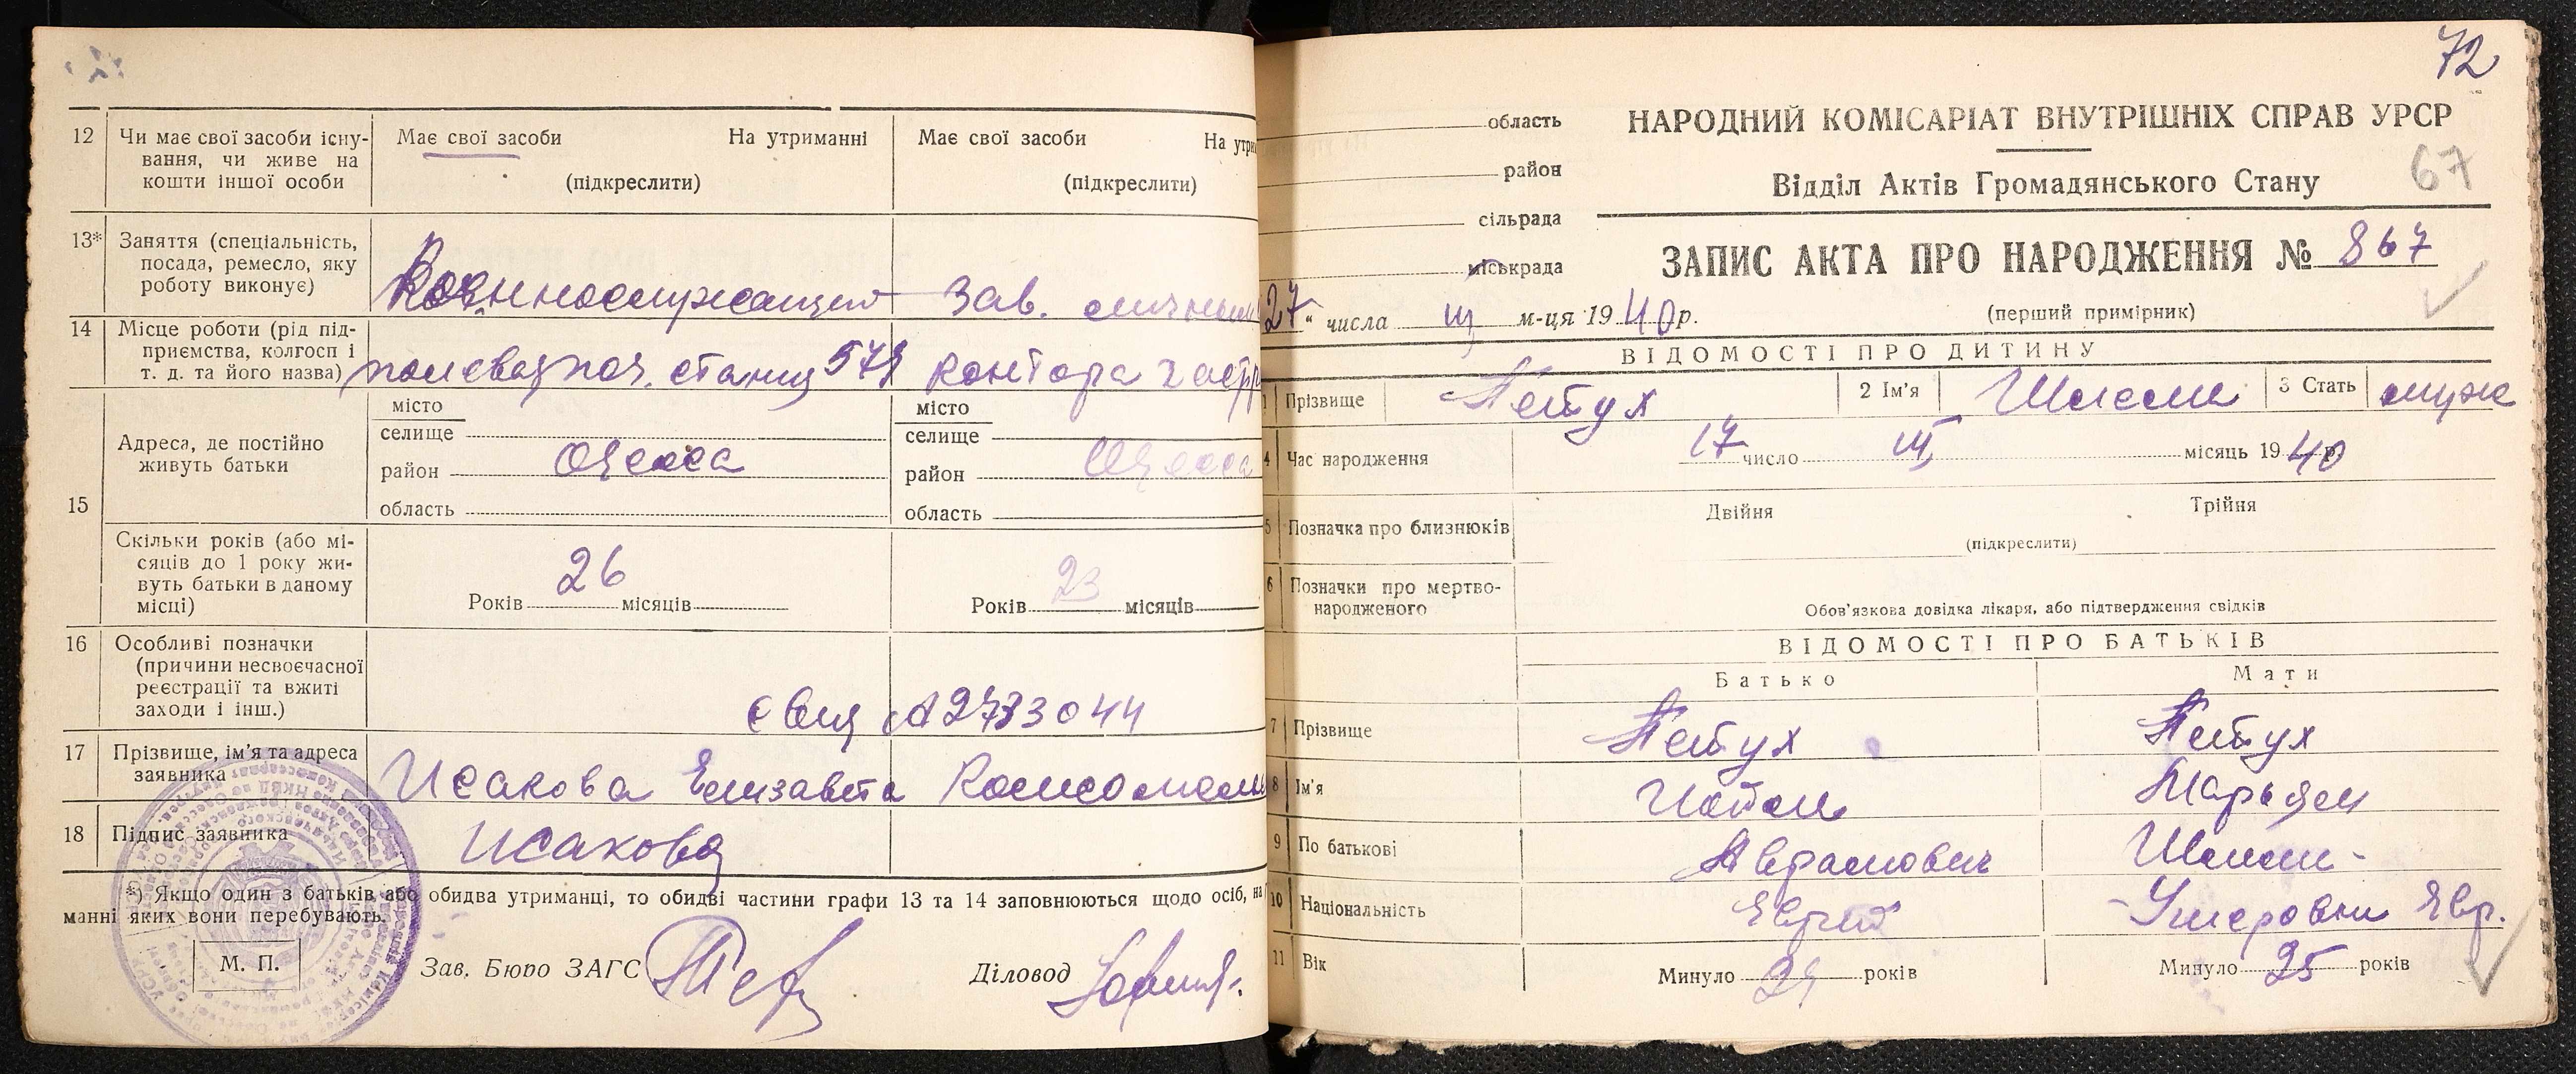 12 Чи має свої засоби існу-
вання, чи живе на
кошти іншої особи
Має свої засоби На утриманні
(підкреслити)
Має свої засоби На утри
(підкреслити)
13* Заняття (спеціальність,
посада, ремесло, яку
роботу виконує)
Военнослужащий Зав. личным
14 Місце роботи (рід під-
приємства, колгосп і
т. д. та його назва)
полевая поч. станц 578 контора
15 Адреса, де постійно
живуть батьки
місто
селище
район Одесса
область
місто
селище
район Одесса
область
Скільки років (або мі-
сяців до 1 року жи-
вуть батьки в даному
місці)
Років 26 місяців
Років 23 місяців
16 Особливі позначки
(причини несвоєчасної
реєстрації та вжиті
заходи і інш.)
17 Прізвище, ім'я та адреса
заявника
Исакова Елизавета Комсомоль
18 Підпис заявника
Исакова
*) Якщо один з батьків, або обидва утриманці, то обидві частини графи 13 та 14 заповнюються щодо осіб, на
манні яких вони перебувають.
М. П.
Зав. Бюро ЗАГС
Діловод
72
область
район
сільрада
міськрада
НАРОДНИЙ КОМІСАРІАТ ВНУТРІШНІХ СПРАВ УРСР
Відділ Актів Громадянського Стану
67
ЗАПИС АКТА ПРО НАРОДЖЕННЯ № 867
(перший примірник)
27" числа III м-ця 1940р.
ВІДОМОСТІ ПРО ДИТИНУ
1 Прізвище Петух 2 Ім'я 3 Стать муж
4 Час народження 17 число III місяць 1940 р.
5 Позначка про близнюків
Двійня Трійня
(підкреслити)
6 Позначки про мертво-
народженого
Обов'язкова довідка лікаря, або підтвердження свідків
ВІДОМОСТІ ПРО БАТЬКІВ
Батько Мати
7 Прізвище Петух Петух
8 Ім'я Марьям
9 По батькові Абрамович
10 Національність Еврей Умеровни Евр.
11 Вік Минуло років Минуло 25 років